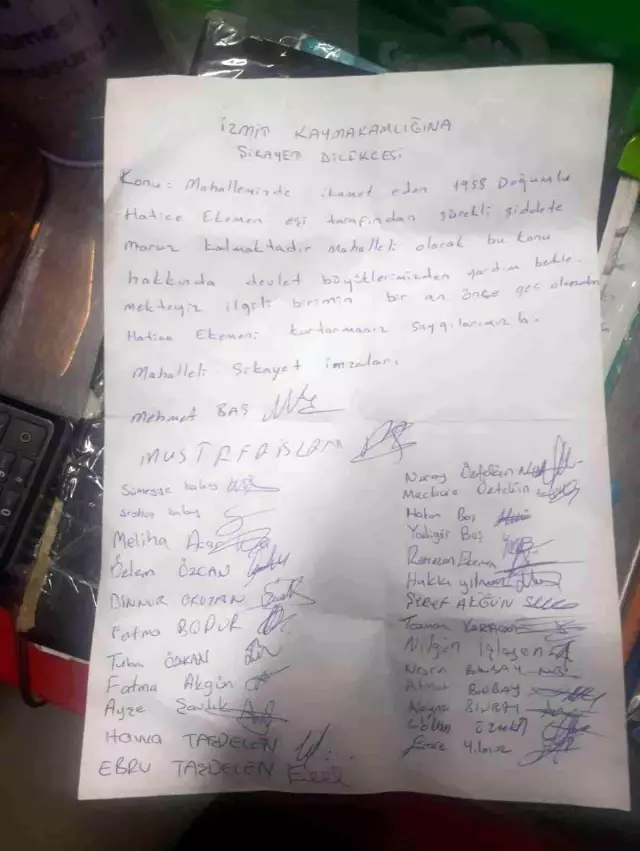 İZMİT KAYMAKAMLIĞINA
ŞİKAYET DİLEKCESİ
Konu: Mahallemizde ikamet eden 1958 Doğumlu
Hatice Ekemen eşi tarafından sürekli şiddete
maruz kalmaktadır Mahalleli olarak bu konu
hakkında devlet büyüklerimizden yardım bekle-
mekteyiz ilgili birimin bir an önce geç olmadan
Hatice Ekemeni kurtarmanız saygılarımızla.
Mahalleli Şikayet imzaları
Mehmet BAŞ
MUSTAFA İSLAM
Meliha
Özlem ÖZCAN
DİNNUR
Fatma BODUR
ÖZKAN
Fatma Akgün
Ayşe
Havva TAŞDELEN
EBRU TAŞDELEN
Nuray
Hakan Baş
Yadigar Baş
Ramazan Ekemen
Hakkı yılmaz
ŞEREF AKGÜN
Nilgün
Nesrin BINBAY
Ahmet
Emre Yılmaz